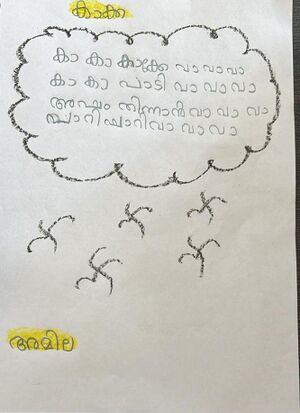 കാക്ക
കാ കാ കാക്കേ വാ വാ വാ
കാ കാ പാടി വാ വാ വാ
അപ്പം തിന്നാൻ വാ വാ വാ
പാറിപ്പാറി വാ വാ വാ
അമില